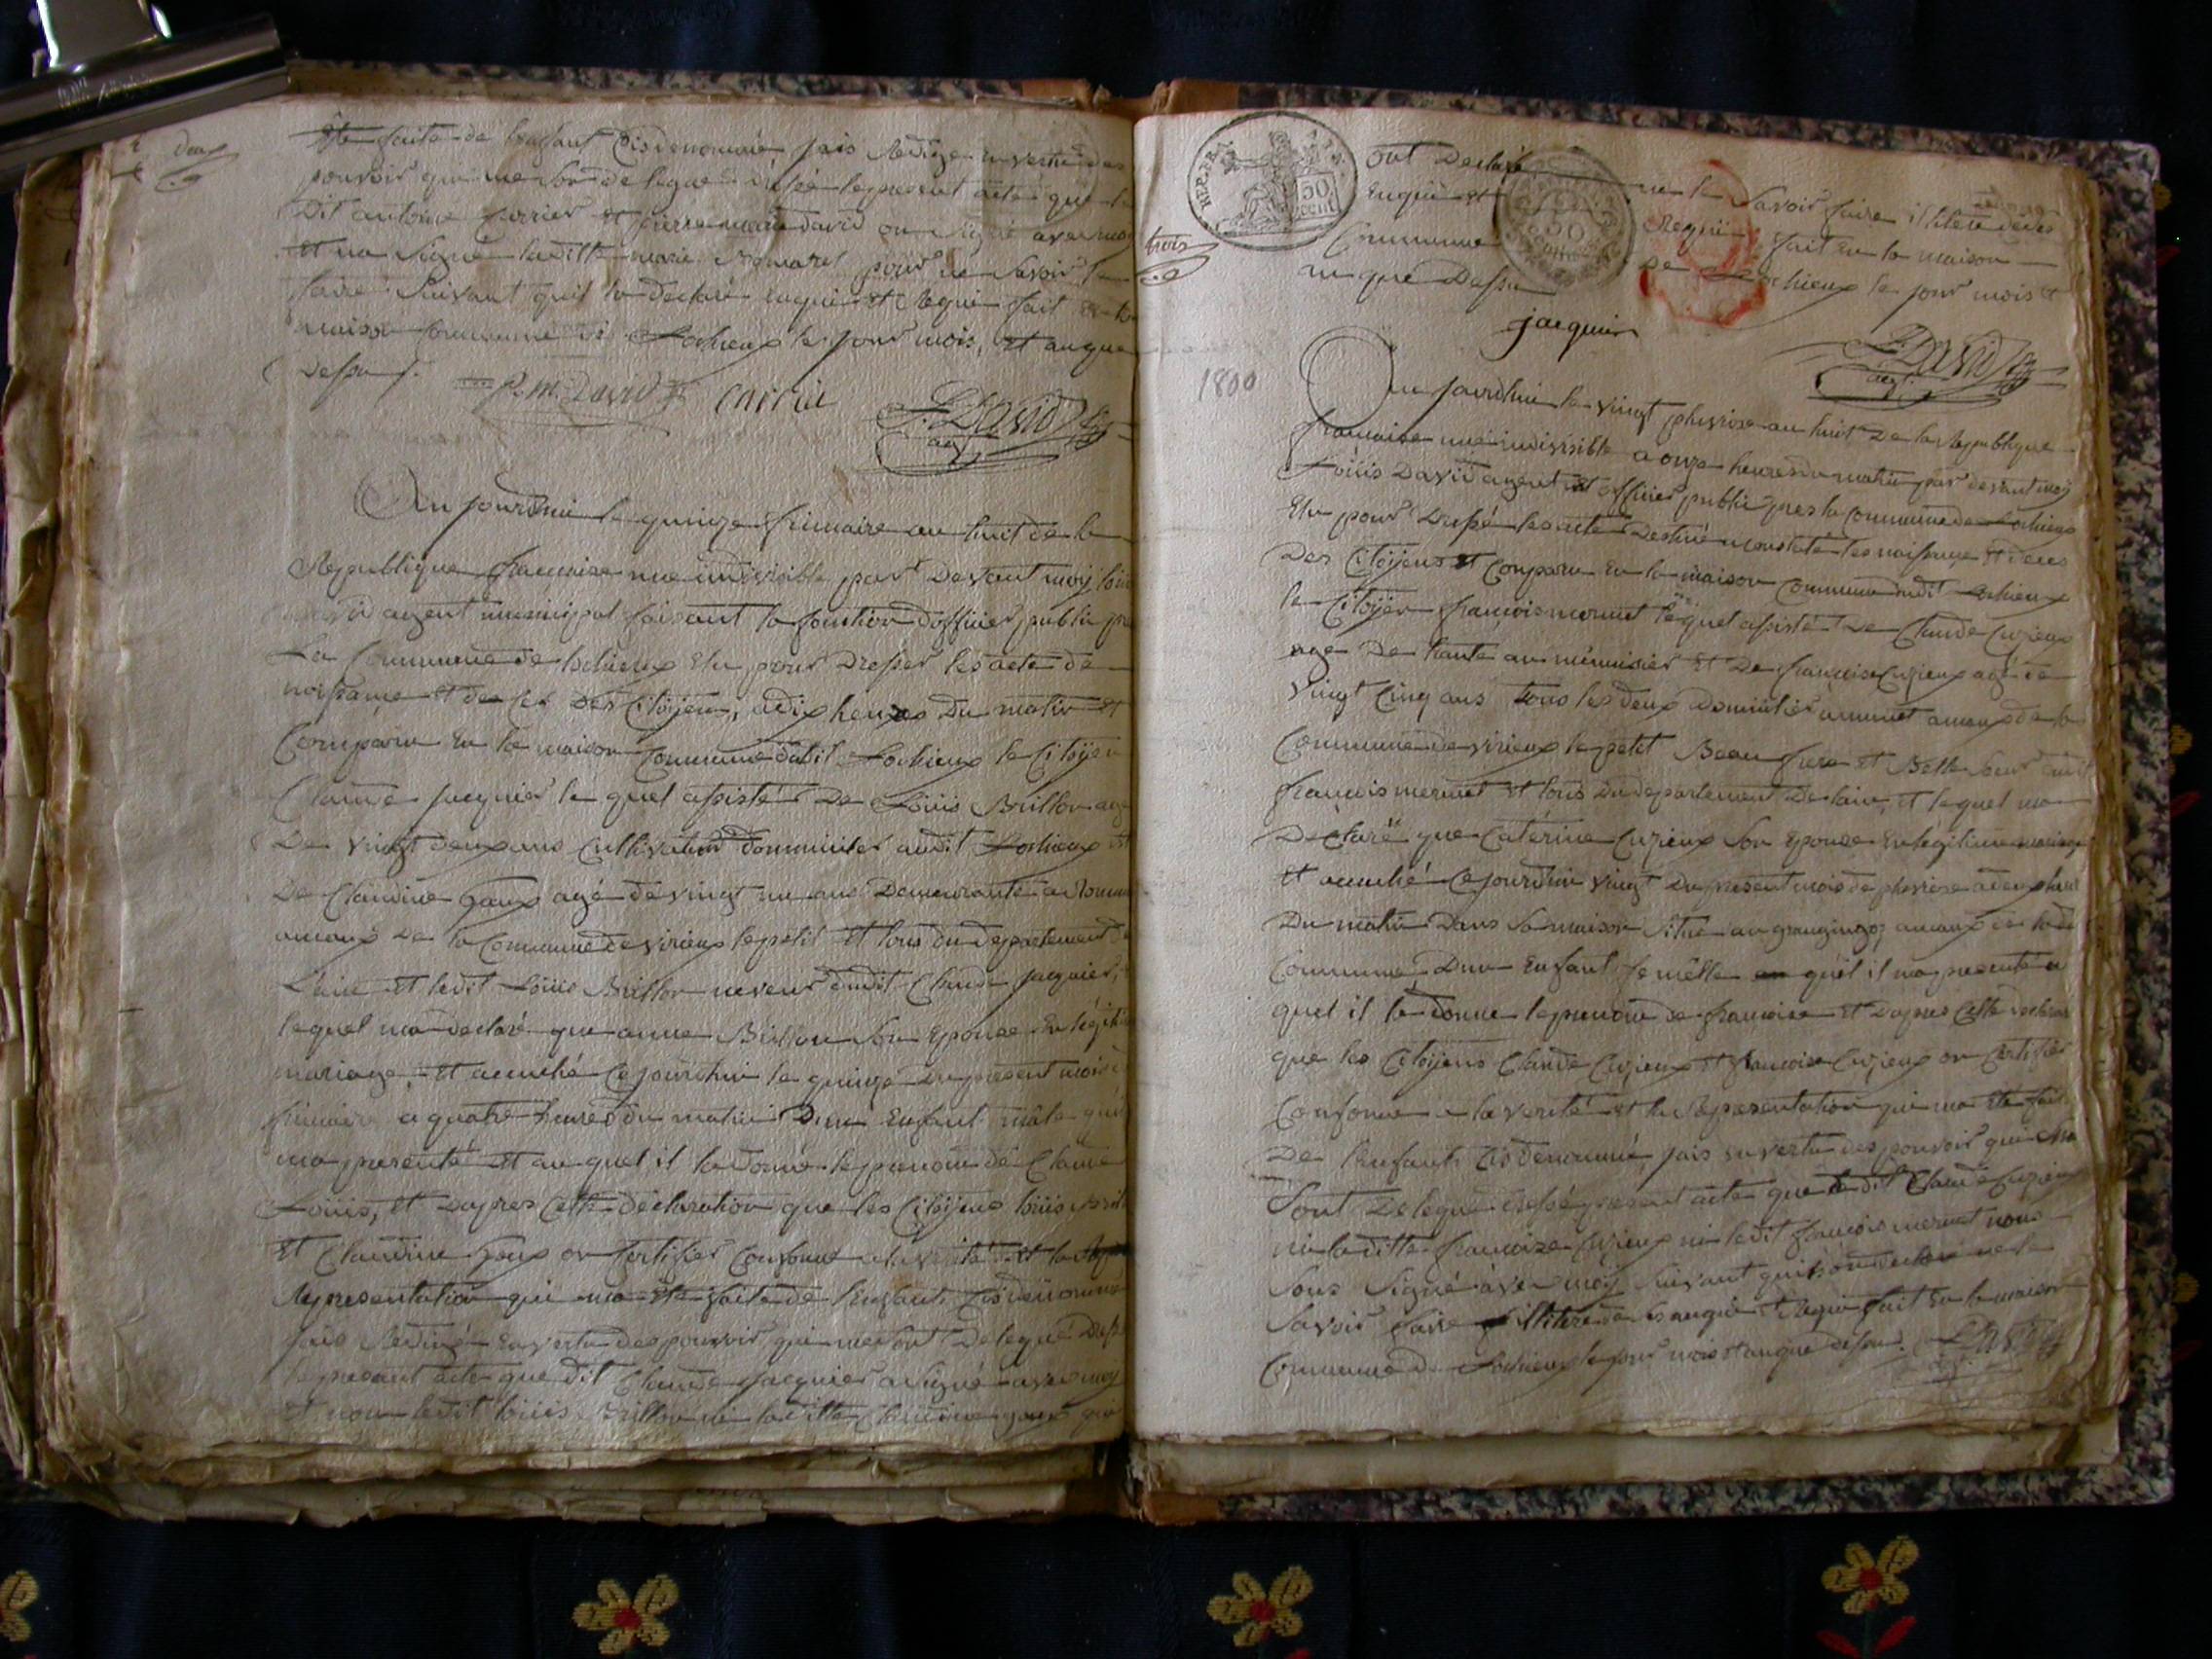 deux
été faite de l'enfant cis denommé jais Redige en vertu des
pouvoir qui me son delegué le present acte que le
Dit antoine Carrier et pierre marie david on signé avec moy
et na Signé laditte marie pour ne Savoir le
faire Suivant quil la declaré enquis et Requis fait en la
maison Commune de Lochieux le jour mois, et an que
dessus
P. m. David Carrié L. David
agt
Au jourdhui le quinze frimaire an huit de la
Republique francaise une indivisible par Devant moy louis
david agent municipal faisant la fonction dofficier public pre
La Commune de lochieux Elu pour Dresser les acte de
naissance et deces des Citoyens, a dix heures du matin est
Comparu en la maison Commune dudit Lochieux le Citoyen
Claude jacquier le quel assisté De Louis Brillon age
De vingt deux ans Cultivateur domicilier audit Lochieux et
De Claudine goux agé de vingt un ans Demeurante a
amaux de la Commune de virieux le petit et tous du departement de
Lain et ledit Louis Brillon neveux dudit Claude jacquier,
lequel ma declaré que anne Brillon Son Epouse En legiti
mariage, et acouché ce jourdhui le quinze du present mois de
frimaire a quatre heures du matin Dun Enfant mâle quil
ma presenté et au quel il la donné le prenom de Claude
Louis, et dapres cette déclaration que les Citoyens louis Brill
et Claudine goux on Certifier Conforme a la verité et la Rep
Representation qui ma été faite de lEnfant cis denommé
jais Redigé en vertu des pouvoir qui me sont Delegué Dress
le present acte que dit Claude jacquier a Signé avec moy
et non ledit louis Brillon ni laditte Claudine goux qui
REP. FRA.
50
cent.
trois
ont Declaré ne le Savoir faire illiteré de ces
Enquis et Requis fait en la maison
Commune de Lochieux le jour mois et
an que Dessus
jacquier
L. David
agt
1800
Au jourdhui le vingt pluviose an huit de la Republique
francaise une indivisible a onze heures du matin par devant moy
Louis David agent et officier public pres la Commune de Lochieux
Elu pour Dressé les acte Destiné a constaté les naissance et deces
Des Citoyens et Comparu En la maison Commune dudit Lochieux
le Citoyen francois mermet le quel assisté De Claude Cuzieux
age De trante an ménuisier et De francoise Cuzieux agé de
vingt Cinq ans tous les deux Domicilier amaux de la
Commune de virieux le petit Beau frere et Belle Sœur dudit
francois mermet et tous du departement de lain, et lequel ma
Declaré que Caterine Cuzieux Son Epouse En legitime mariage
et acouché ce jourdhui vingt du present mois de pluviose a deux heur
Du matin Dans Sa maison Situé au amaux de ladi
Commune, Dun Enfant femélle quél il ma presenté a
quel il la donné le prenom de francoise et dapres cette declarat
que les Citoyens Claude Cuzieux et francoise Cuzieux on Certifier
Conforme a la verité et la Representation qui ma été fait
De lEnfant Cis denommé, jais en vertu des pouvoir qui me
Sont Delegué present acte que ledit Claude Cuzieux
ni laditte francoize Cuzieux ni ledit francois mermet nons
Sous Signé avec moy Suivant quils on declaré ne le
Savoir faire illiteré enquis et Requis fait En la maison
Commune de Lochieux le jour mois et an que dessus. L. David
agt.